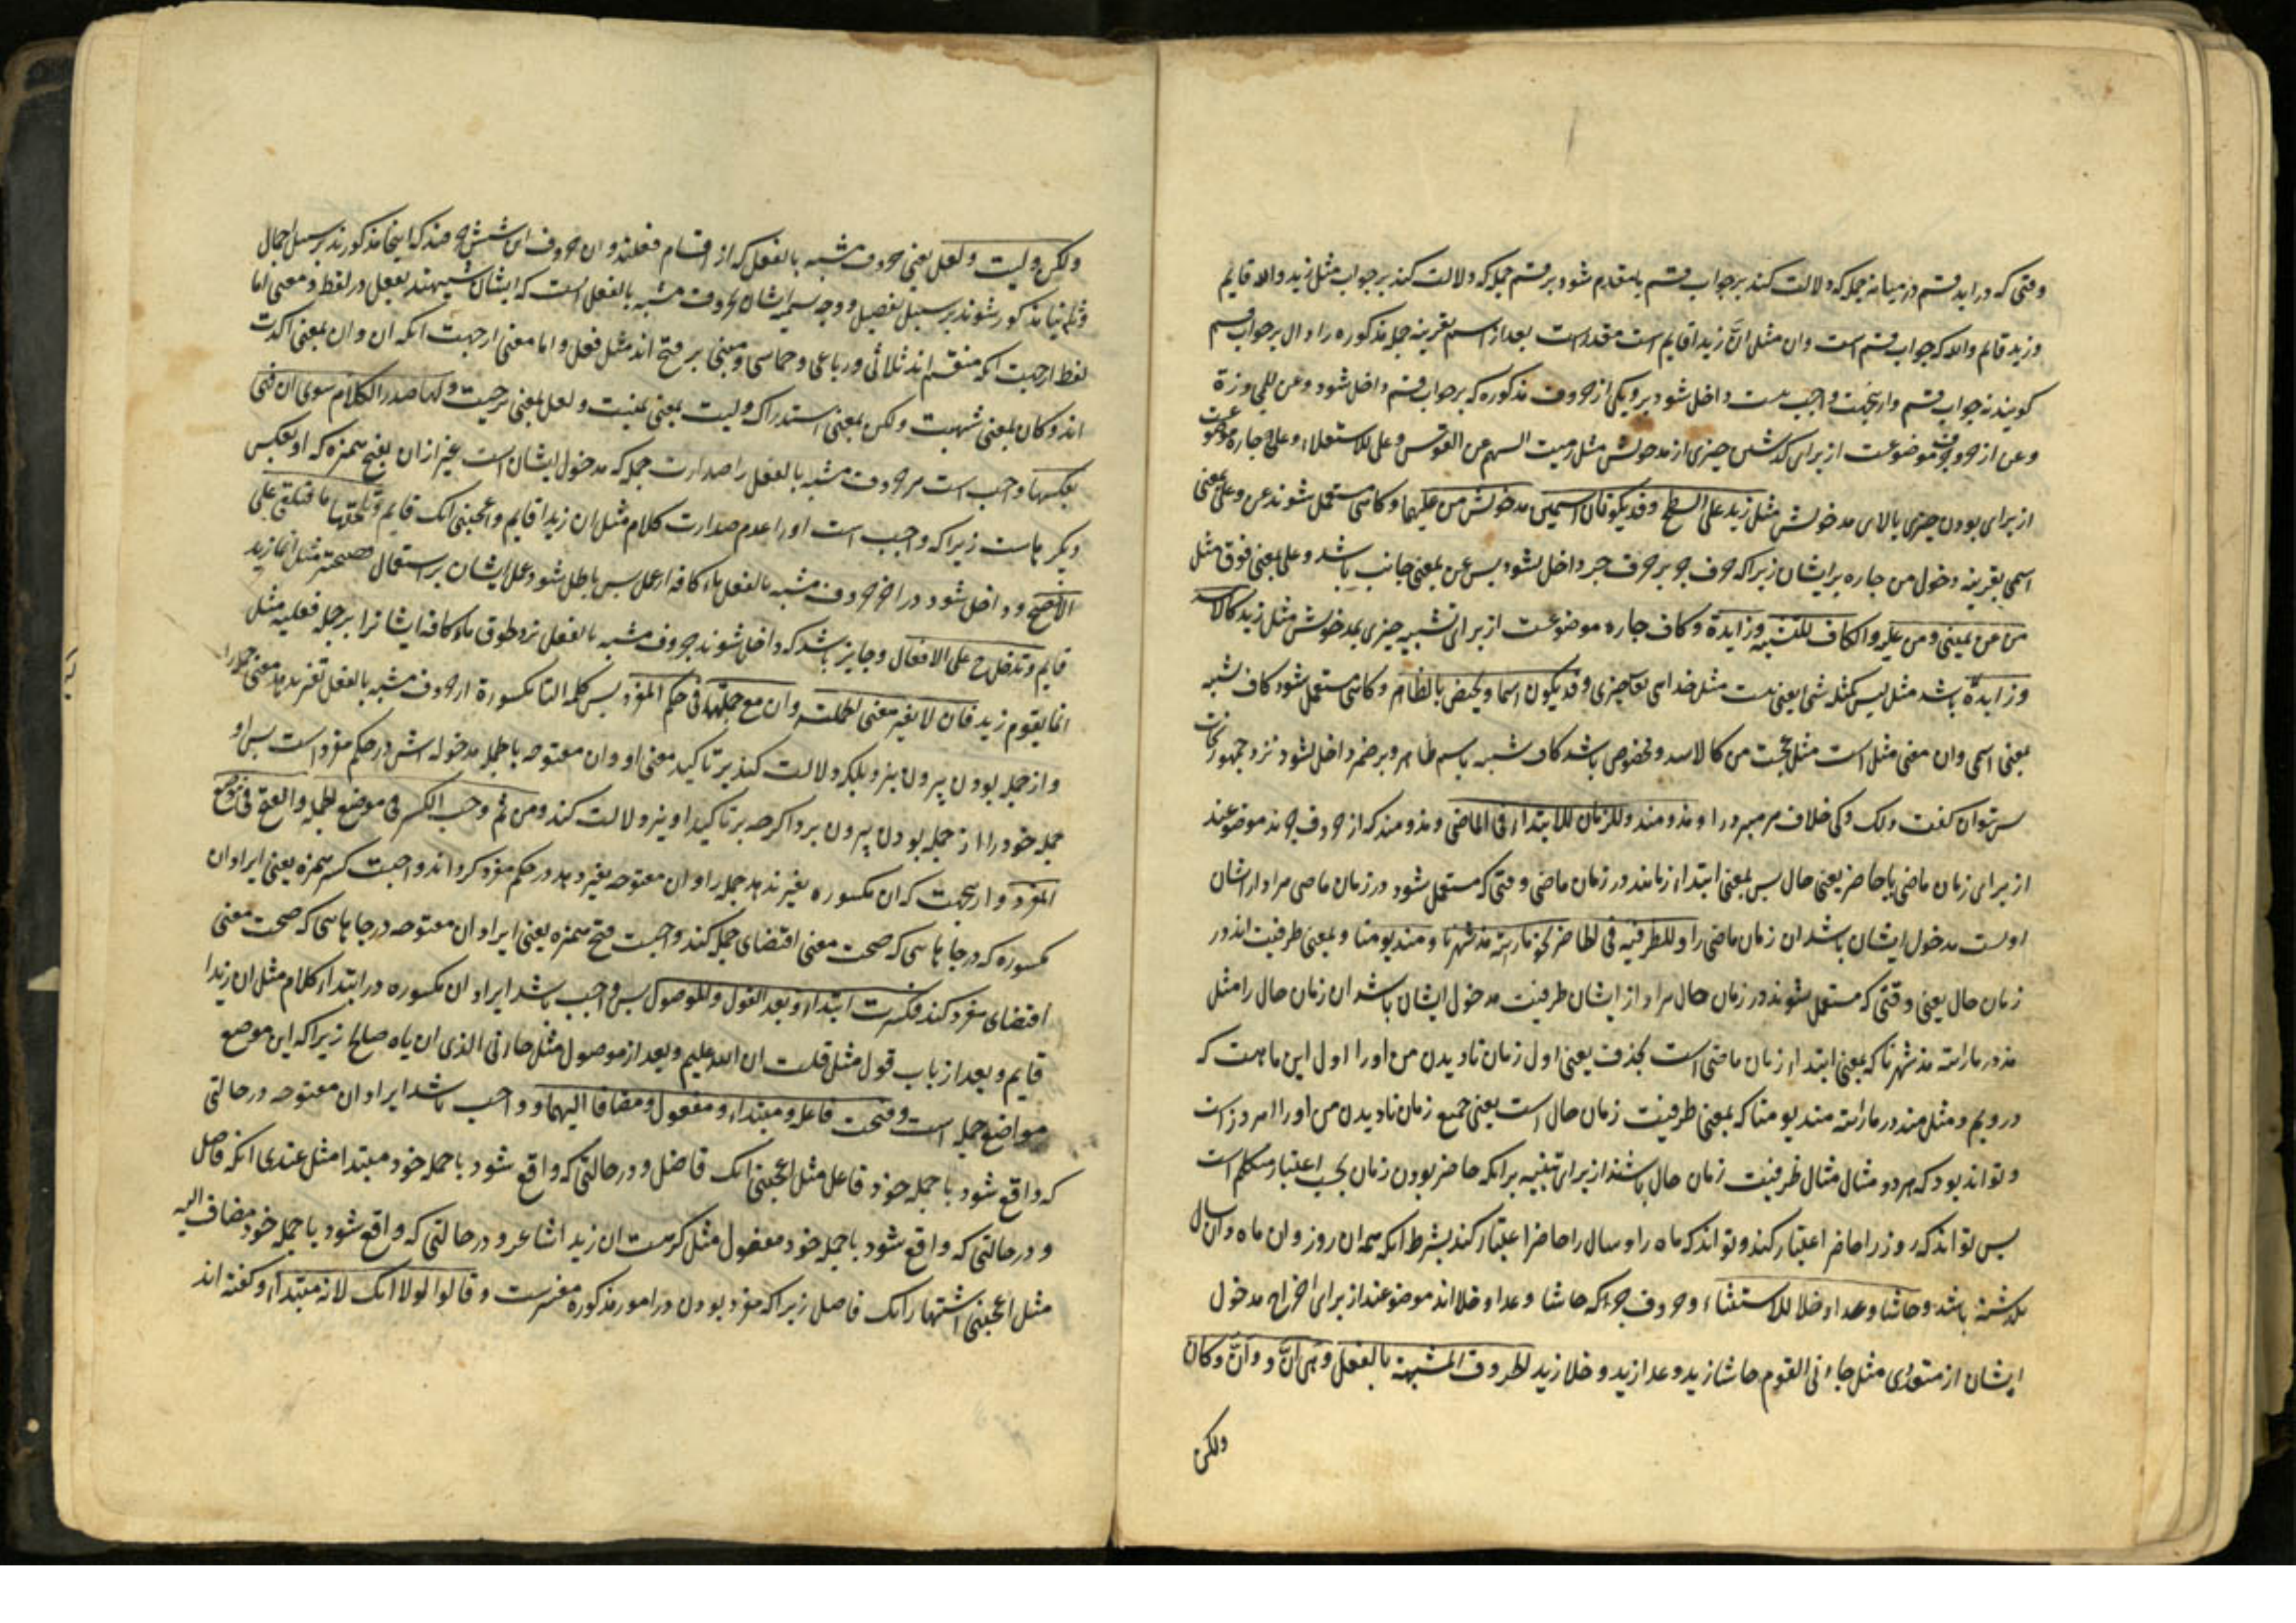 وقتی که دراید قسم در میانه جمله که دلالت کند بر جواب قسم یا مقدم شود بر قسم جمله که دلالت کند بر جواب مثل زید والله قایم
و زید قایم والله که جواب قسم است وان مثل انّ زیدا قایم است مقدر است بعد از اسم بقرینه جمله مذکوره را و ال بر جواب قسم
کویند نه جواب قسم و از ینجهت واجب نیست داخل شود برو یکی از حروف مذکوره که بر جواب قسم داخل شود وعن للمجاوزة
وعن از حروف جر موضوعست از برای کذشتن چیزی از مدخولش مثل رمیت السهم عن القوس وعلی للاستعلاء وعلی جاره موضوعست
از برای بودن چیزی بالای مدخولش مثل زید علی السطح وقد یکونان اسمین مدخولش من علیهما و کاهی مستعمل شوند عن وعلی بمعنی
اسمی بقرینه دخول من جاره بر ایشان زیرا که حرف جر بر حرف جر داخل نشود پس عن بمعنی جانب باشد وعلی بمعنی فوق مثل
من عن یمینی ومن علیه والکاف للتشبیه وزایدة وکاف جاره موضوعست از برای تشبیه چیزی بمدخولش مثل زید کالاسد
وزایده باشد مثل لیس کمثله شیء یعنی نیست مثل خدای تعا چیزی وقد یکون اسما ویختص بالظاهر و کاهی مستعمل شود کاف تشبیه
بمعنی اسمی وان معنی مثل است مثل عجبت من کالاسد ومخصوص باشد کاف تشبیه باسم ظاهر وبر ضمیر داخل نشود نزد جمهور نحات
پس نتوان کفت کک وکی خلاف مر مبرد را ومذ ومنذ وللزمان للابتداء فی الماضی ومذ ومنذ که از حروف جرند موضوعند
از برای زمان ماضی یا حاضر یعنی حال پس بمعنی ابتداء زمانند در زمان ماضی وقتی که مستعمل شود در زمان ماضی مراد از ایشان
اولیت مدخول ایشان باشد ان زمان ماضی را وللظرفیة فی الحاضر نحو مارایته مذ شهرنا ومنذ یومنا وبمعنی ظرفیت اند در
زمان حال یعنی وقتی که مستعمل شوند در زمان حال مراد از ایشان ظرفیت مدخول ایشان باشد ان زمان حال را مثل
مذ در مارایته مذ شهرنا که بمعنی ابتداء زمان ماضی است بحذف یعنی اول زمان نادیدن من او را اول این ماهست که
درویم ومثل منذ در مارایته منذ یومنا که بمعنی ظرفیت زمان حال است یعنی جمیع زمان نادیدن من او را امروز است
وتواند بود که هر دو مثال مثال ظرفیت زمان حال باشند از برای تنبیه بر انکه حاضر بودن زمان بحسب اعتبار متکلم است
پس تواند که روز را حاضر اعتبار کند وتواند که ماه را وسال را حاضر اعتبار کند بشرط انکه همه ان روز وان ماه وان سال
نکذشته باشد وحاشا وعدا وخلا للاستثناء وحروف جر که حاشا وعدا وخلا اند موضوعند از برای اخراج مدخول
ایشان از متعددی مثل جاءنی القوم حاشا زید وعدا زید وخلا زید الحروف المشبهة بالفعل وهی انّ و وانّ وکان
ولکن
ولکن ولیت ولعل یعنی حروف مشبه بالفعل که از اقسام فعلند وان حروف این شش حرفند که اینجا مذکورند بر سبیل اجمال
مذکور شوند بر سبیل تفصیل ووجه تسمیه ایشان بحروف مشبه بالفعل انست که ایشان شبیهند بفعل در لفظ ومعنی اما
لفظ از جهت انکه منقسم اند ثلاثی ورباعی وخماسی ومبنی بر فتح اند مثل فعل واما معنی از جهت انکه ان وان بمعنی اکدت
اند وکان بمعنی شبهت ولکن بمعنی استدراک ولیت بمعنی تمنیت ولعل بمعنی ترجیت ولها صدر الکلام سوی ان فهی
بعکسها واجب است مر حروف مشبه بالفعل را صدارت جمله که مدخول ایشان است غیر از ان بفتح همزه که او بعکس
دیکر هاست زیرا که واجب است او را عدم صدارت کلام مثل ان زیدا قایم واعجبنی انک قایم وتلحقها ما فتلغی علی
الافصح و داخل شود در اخر حروف مشبه بالفعل ماء کافه از عمل پس باطل شود عمل ایشان بر استعمال فصیحتر مثل انما زید
قایم وتدخل ح علی الافعال وجایز باشد که داخل شوند حروف مشبه بالفعل نزد لحوق ماء کافه ایشانرا بر جمله فعلیه مثل
انما یقوم زید فان لا یغیر معنی الجملة وان مع جملتها فی حکم المفرد پس کلمه انّ مکسورة از حروف مشبه بالفعل تغیر ندهد معنی جمله را
و از جمله بودن بیرون نبرد بلکه دلالت کند بر تاکید معنی او وان مفتوحه با جمله مدخوله اش در حکم مفرد است پس او
جمله خود را از جمله بودن بیرون برد اکرچه بر تاکید او نیز دلالت کند ومن ثم وجب الکسر فی موضع الجملة والفتح فی موضع
المفرد و از ینجهت که ان مکسوره تغیر ندهد جمله را وان مفتوحه تغیر دهد در حکم مفرد کرداند واجبست کسر همزه یعنی ایراد ان
مکسوره که در جاهایی که صحت معنی اقتضای جمله کند واجبست فتح همزه یعنی ایراد ان مفتوحه در جاهایی که صحت معنی
اقتضای مفرد کند فکسرت ابتداء وبعد القول والموصول پس واجب باشد ایراد ان مکسوره در ابتداء کلام مثل ان زیدا
قایم وبعد از باب قول مثل قلت ان الله علیم وبعد از موصول مثل جاءنی الذی ان اباه صالح زیرا که این موضع
مواضع جمله است وفتحت فاعلة ومبتداء ومفعول ومضافا الیها و واجب باشد ایراد ان مفتوحه در حالتی
که واقع شود با جمله خود فاعل مثل اعجبنی انک فاضل ودر حالتی که واقع شود با جمله خود مبتدا مثل عندی انک فاضل
و در حالتی که واقع شود با جمله خود مفعول مثل کرهت ان زیدا شاعر ودر حالتی که واقع شود با جمله خود مضاف الیه
مثل اعجبنی اشتهار انک فاضل زیرا که مفرد بودن در امور مذکوره مفسرست وقالوا لولا انک لانه مبتداء وکفته اند